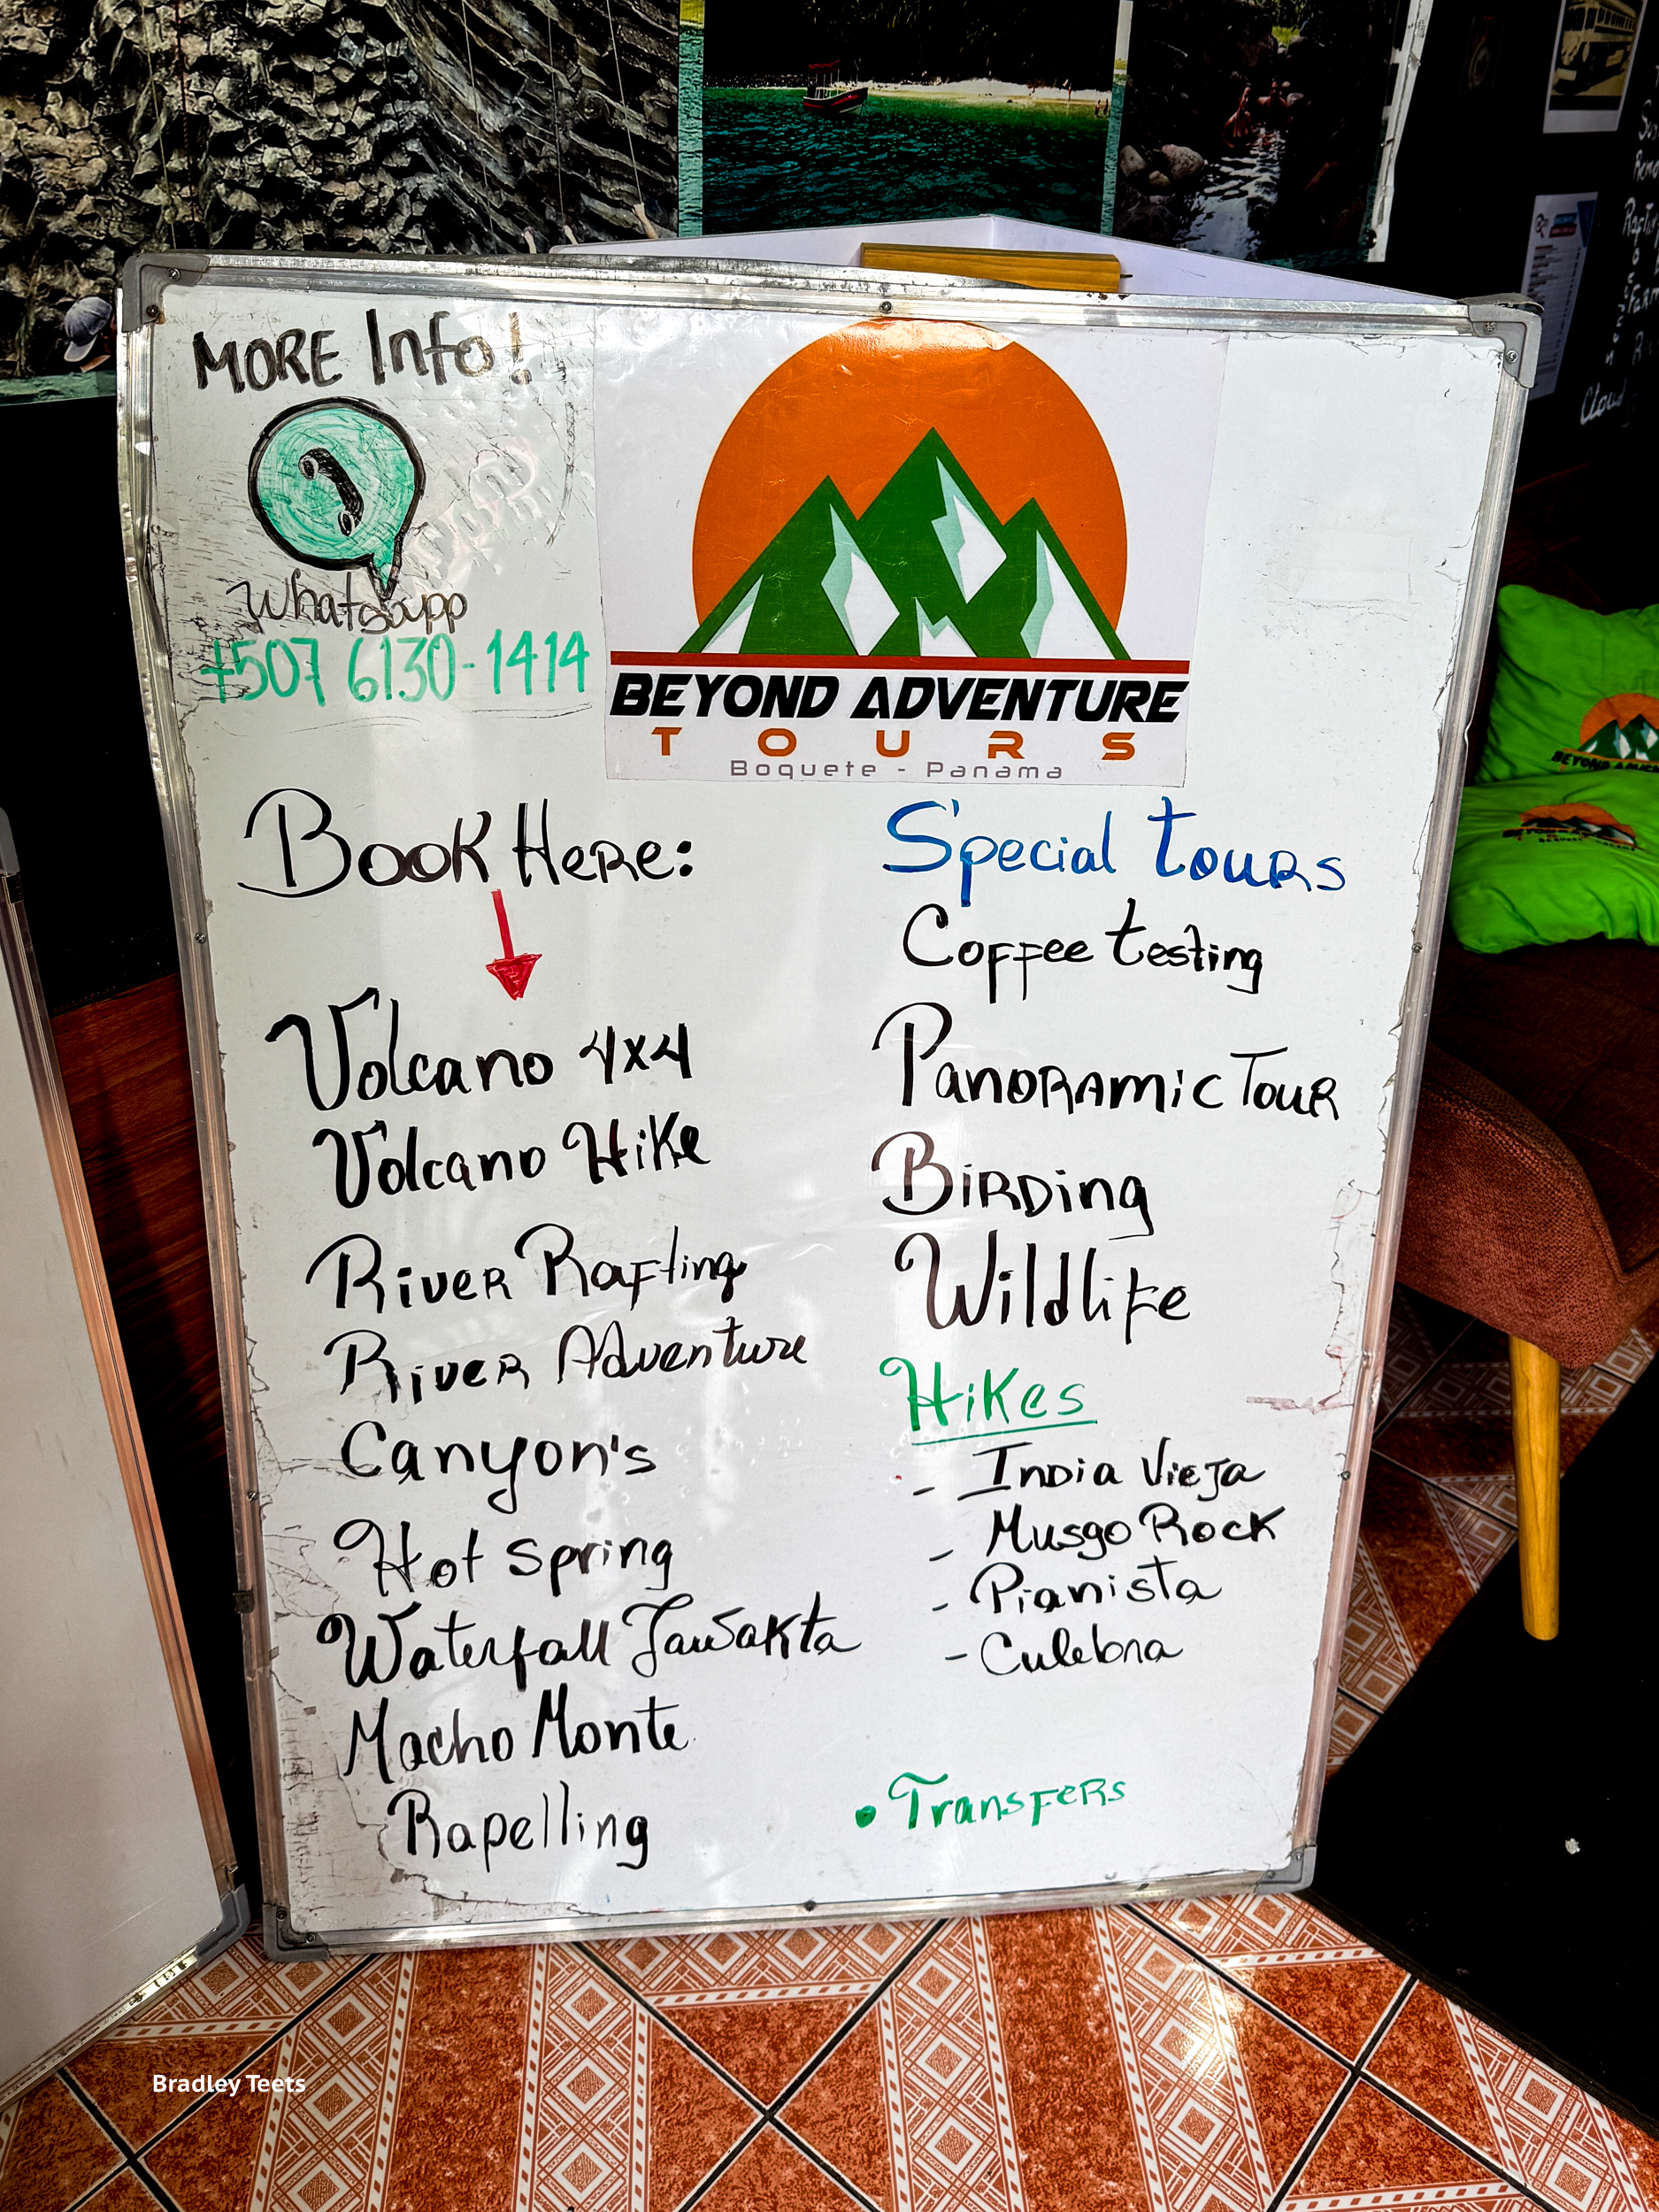 MORE Info!
Whatsapp
+507 6130-1414
BEYOND ADVENTURE
TOURS
Boquete - Panama
Book Here:
Volcano 4x4
Volcano Hike
River Rafting
River Adventure
Canyon's
Hot spring
Waterfall Jawsakta
Macho Monte
Rapelling
Special tours
Coffee testing
Panoramic Tour
Birding
Wildlife
Hikes
- India Vieja
- Musgo Rock
- Pianista
- Culebra
• Transfers
Cloud
Bradley Teets